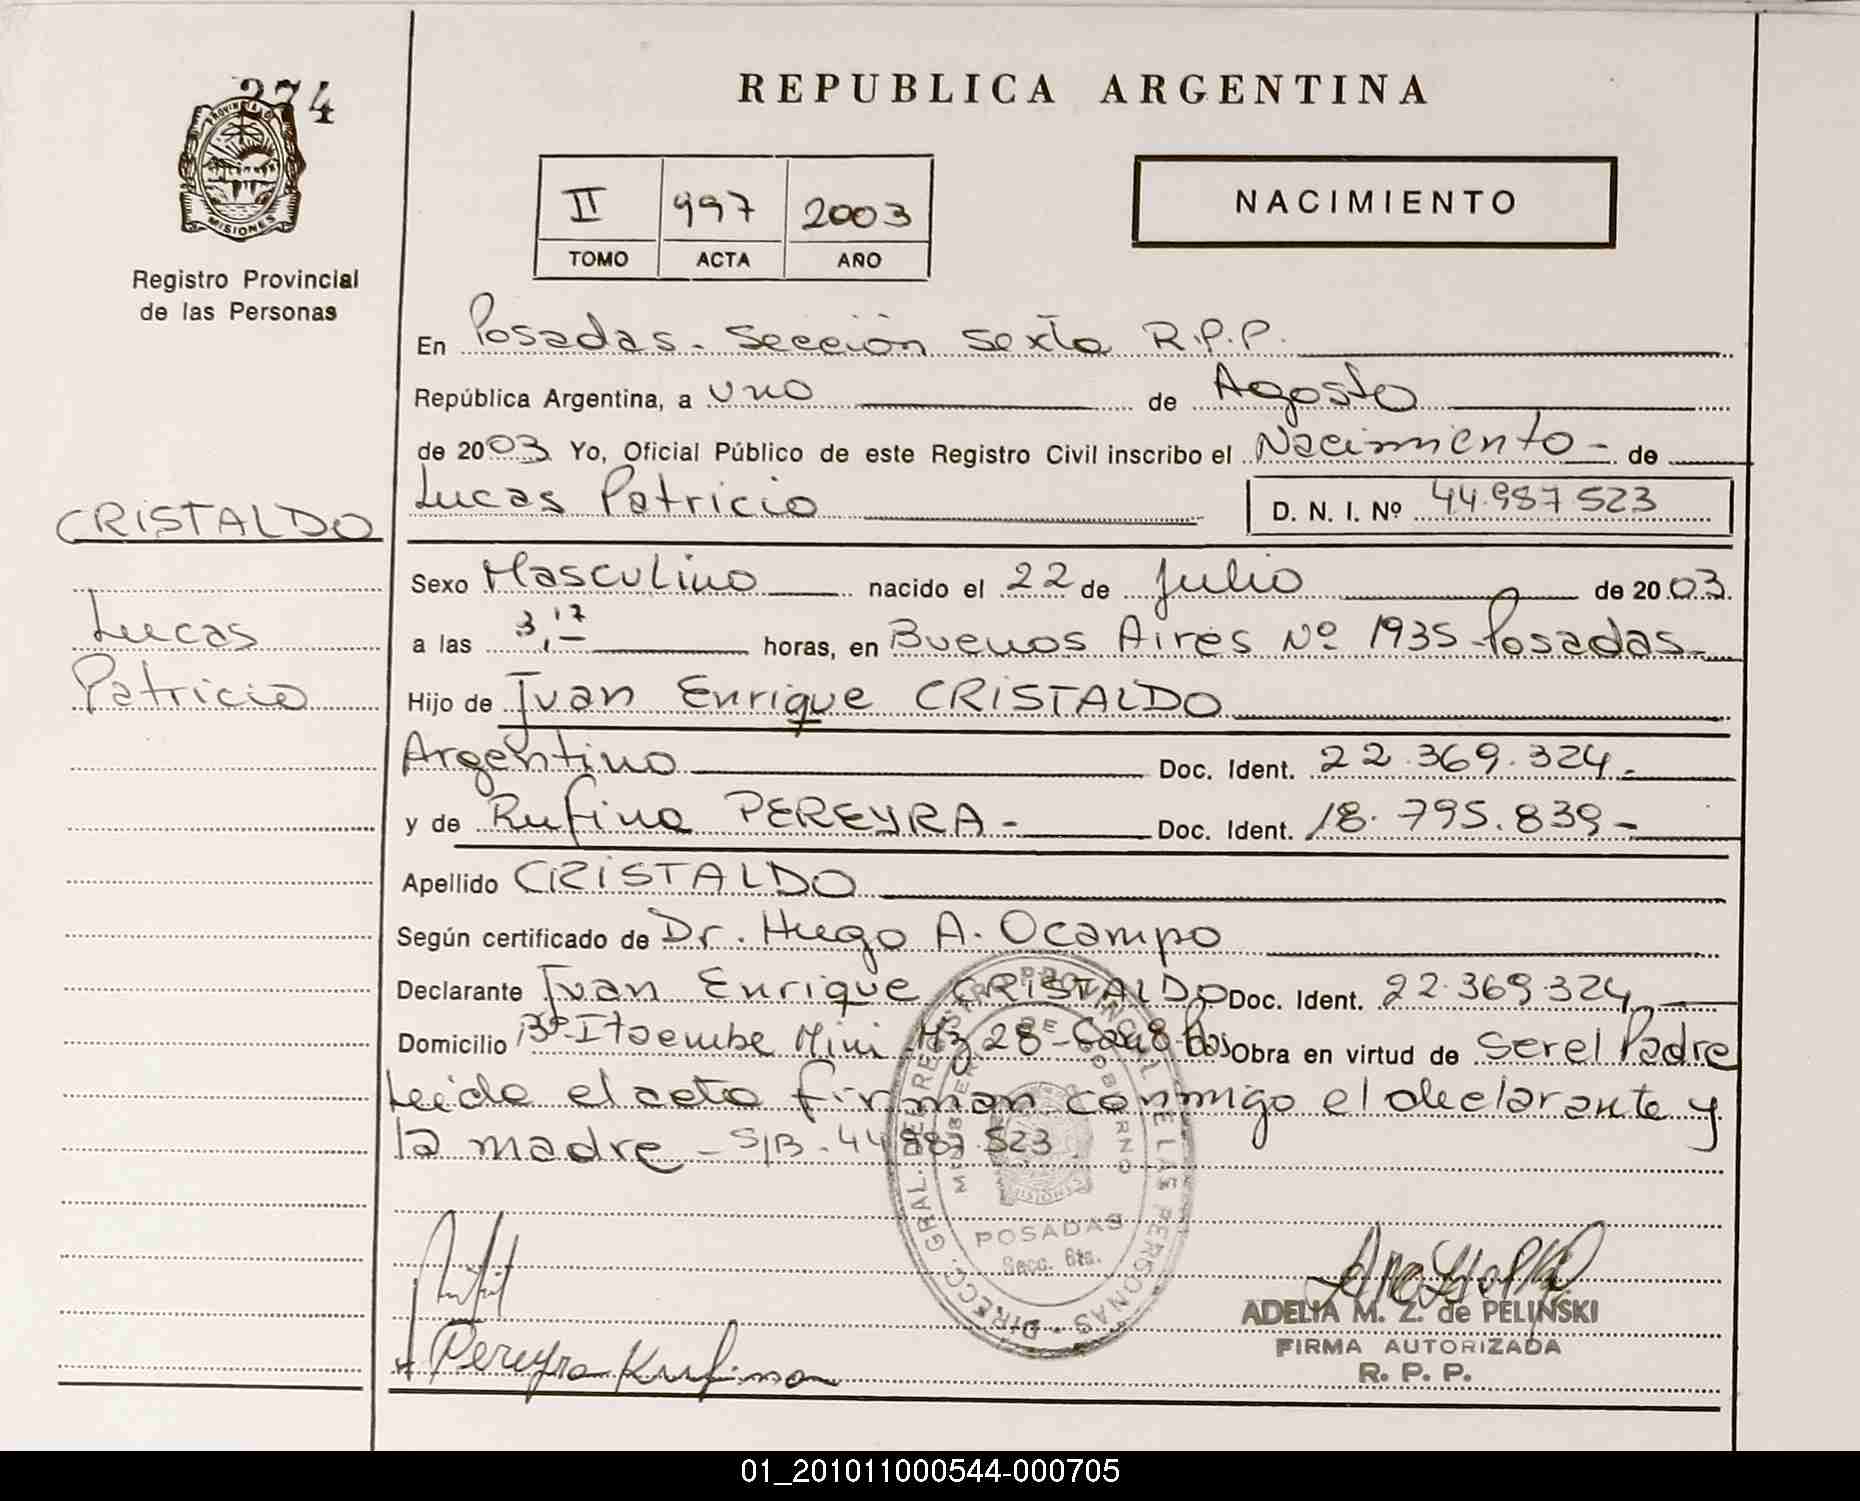 374
PROVINCIA D
MISIONES
Registro Provincial
de las Personas
CRISTALDO
Lucas
Patricio
REPUBLICA ARGENTINA
II 997 2003
TOMO ACTA AÑO
NACIMIENTO
En Posadas - Sección Sexta R.P.P.
República Argentina, a uno de Agosto
de 2003 Yo, Oficial Público de este Registro Civil inscribo el Nacimiento - de
Lucas Patricio D. N. I. Nº 44.987.523
Sexo Masculino nacido el 22 de Julio de 2003.
a las 3,17 horas, en Buenos Aires Nº 1935 - Posadas -
Hijo de Ivan Enrique CRISTALDO
Argentino Doc. Ident. 22.369.324 -
y de Rufina PEREYRA - Doc. Ident. 18.795.839 -
Apellido CRISTALDO
Según certificado de Dr. Hugo A. Ocampo
Declarante Ivan Enrique CRISTALDO Doc. Ident. 22.369.324
Domicilio Bº Itaembe Mini - Mz 28 - Casa 8 Pos Obra en virtud de ser el Padre
Leida el acta firman conmigo el declarante y
la madre - S/B - 44.987.523
DIRECC. GRAL. DE REGISTRO PROVINCIAL DE LAS PERSONAS
DE GOBIERNO
POSADAS
Secc. 6ta.
MISIONES
Pereyra Rufina
ADELIA M. Z. de PELINSKI
FIRMA AUTORIZADA
R. P. P.
01_201011000544-000705